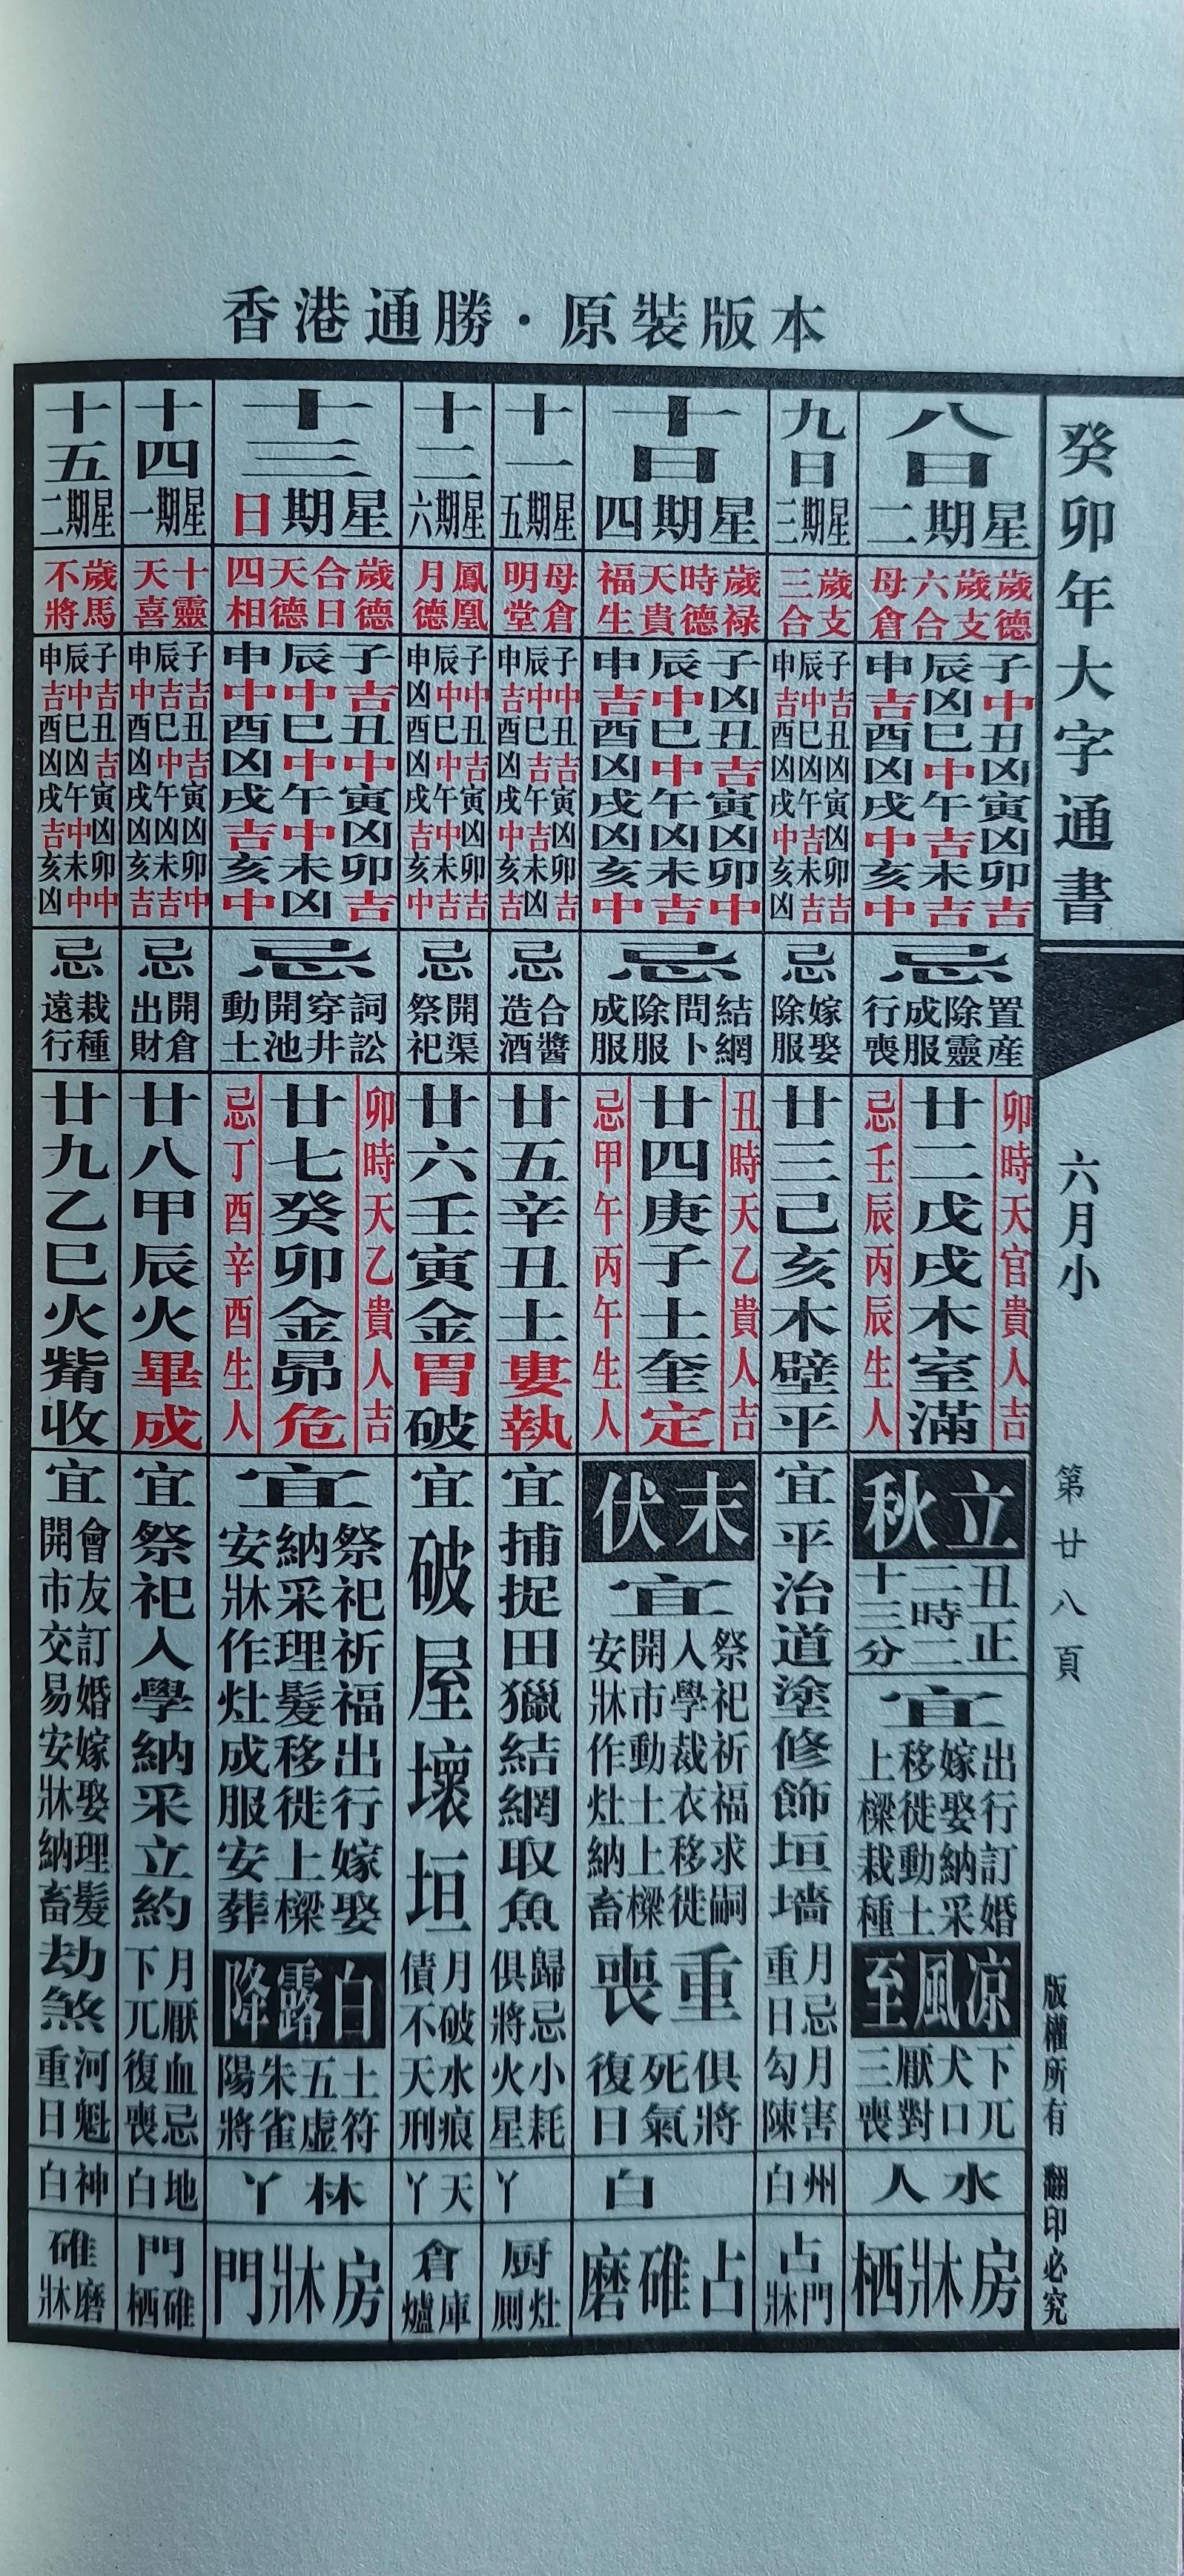 香港通勝·原裝版本
癸卯年大字通書
六月小
第廿八頁
版權所有 翻印必究
八日
星期二
歲德
歲支
六合
母倉
子中丑凶寅凶卯吉
辰凶巳中午吉未吉
申吉酉凶戌中亥中
忌
置產
除靈
成服
行喪
卯時天官貴人吉
廿二戊戌木室滿
忌壬辰丙辰生人
立秋
丑正
二時二
十三分
宜
出行訂婚
嫁娶納采
移徙動土
上樑栽種
凉風至
下兀
犬口
厭對
三喪
水人
房牀栖
九日
星期三
歲支
三合
子吉丑凶寅凶卯吉
辰中巳凶午吉未吉
申吉酉凶戌中亥凶
忌
嫁娶
除服
廿三己亥木壁平
宜
平治道塗修飾垣墻
月忌月害
重日勾陳
州白
占
門牀
十日
星期四
歲祿
時德
天貴
福生
子凶丑吉寅凶卯中
辰中巳中午凶未吉
申吉酉凶戌凶亥中
忌
結網
問卜
除服
成服
丑時天乙貴人吉
廿四庚子土奎定
忌甲午丙午生人
末伏
宜
祭祀祈福求嗣
入學裁衣移徙
開市動土上樑
安牀作灶納畜
重喪
俱將
死氣
復日
白
占碓磨
十一
星期五
母倉
明堂
子中丑吉寅凶卯吉
辰中巳吉午吉未凶
申吉酉凶戌中亥吉
忌
合醬
造酒
廿五辛丑土婁執
宜
捕捉田獵結網取魚
歸忌小耗
俱將火星
丫
厨
灶厠
十二
星期六
鳳凰
月德
子中丑吉寅凶卯吉
辰中巳中午中未吉
申凶酉凶戌吉亥中
忌
開渠
祭祀
廿六壬寅金胃破
宜
破屋壞垣
月破水痕
債不天刑
天丫
倉
庫爐
十三
星期日
歲德
合日
天德
四相
子吉丑中寅凶卯吉
辰中巳中午中未凶
申中酉凶戌吉亥中
忌
詞訟
穿井
開池
動土
卯時天乙貴人吉
廿七癸卯金昴危
忌丁酉辛酉生人
宜
祭祀祈福出行嫁娶
納采理髮移徙上樑
安牀作灶成服安葬
白露降
土符
五虛
朱雀
陽將
林丫
房牀門
十四
星期一
十靈
天喜
子吉丑吉寅凶卯中
辰吉巳中午凶未吉
申中酉凶戌凶亥吉
忌
開倉
出財
廿八甲辰火畢成
宜
祭祀入學納采立約
月厭血忌
下兀復喪
地白
門
碓栖
十五
星期二
歲馬
不將
子吉丑吉寅凶卯中
辰中巳凶午中未中
申吉酉凶戌吉亥凶
忌
栽種
遠行
廿九乙巳火觜收
宜
會友訂婚嫁娶理髮
開市交易安牀納畜
劫煞
河魁
重日
神白
碓
磨牀